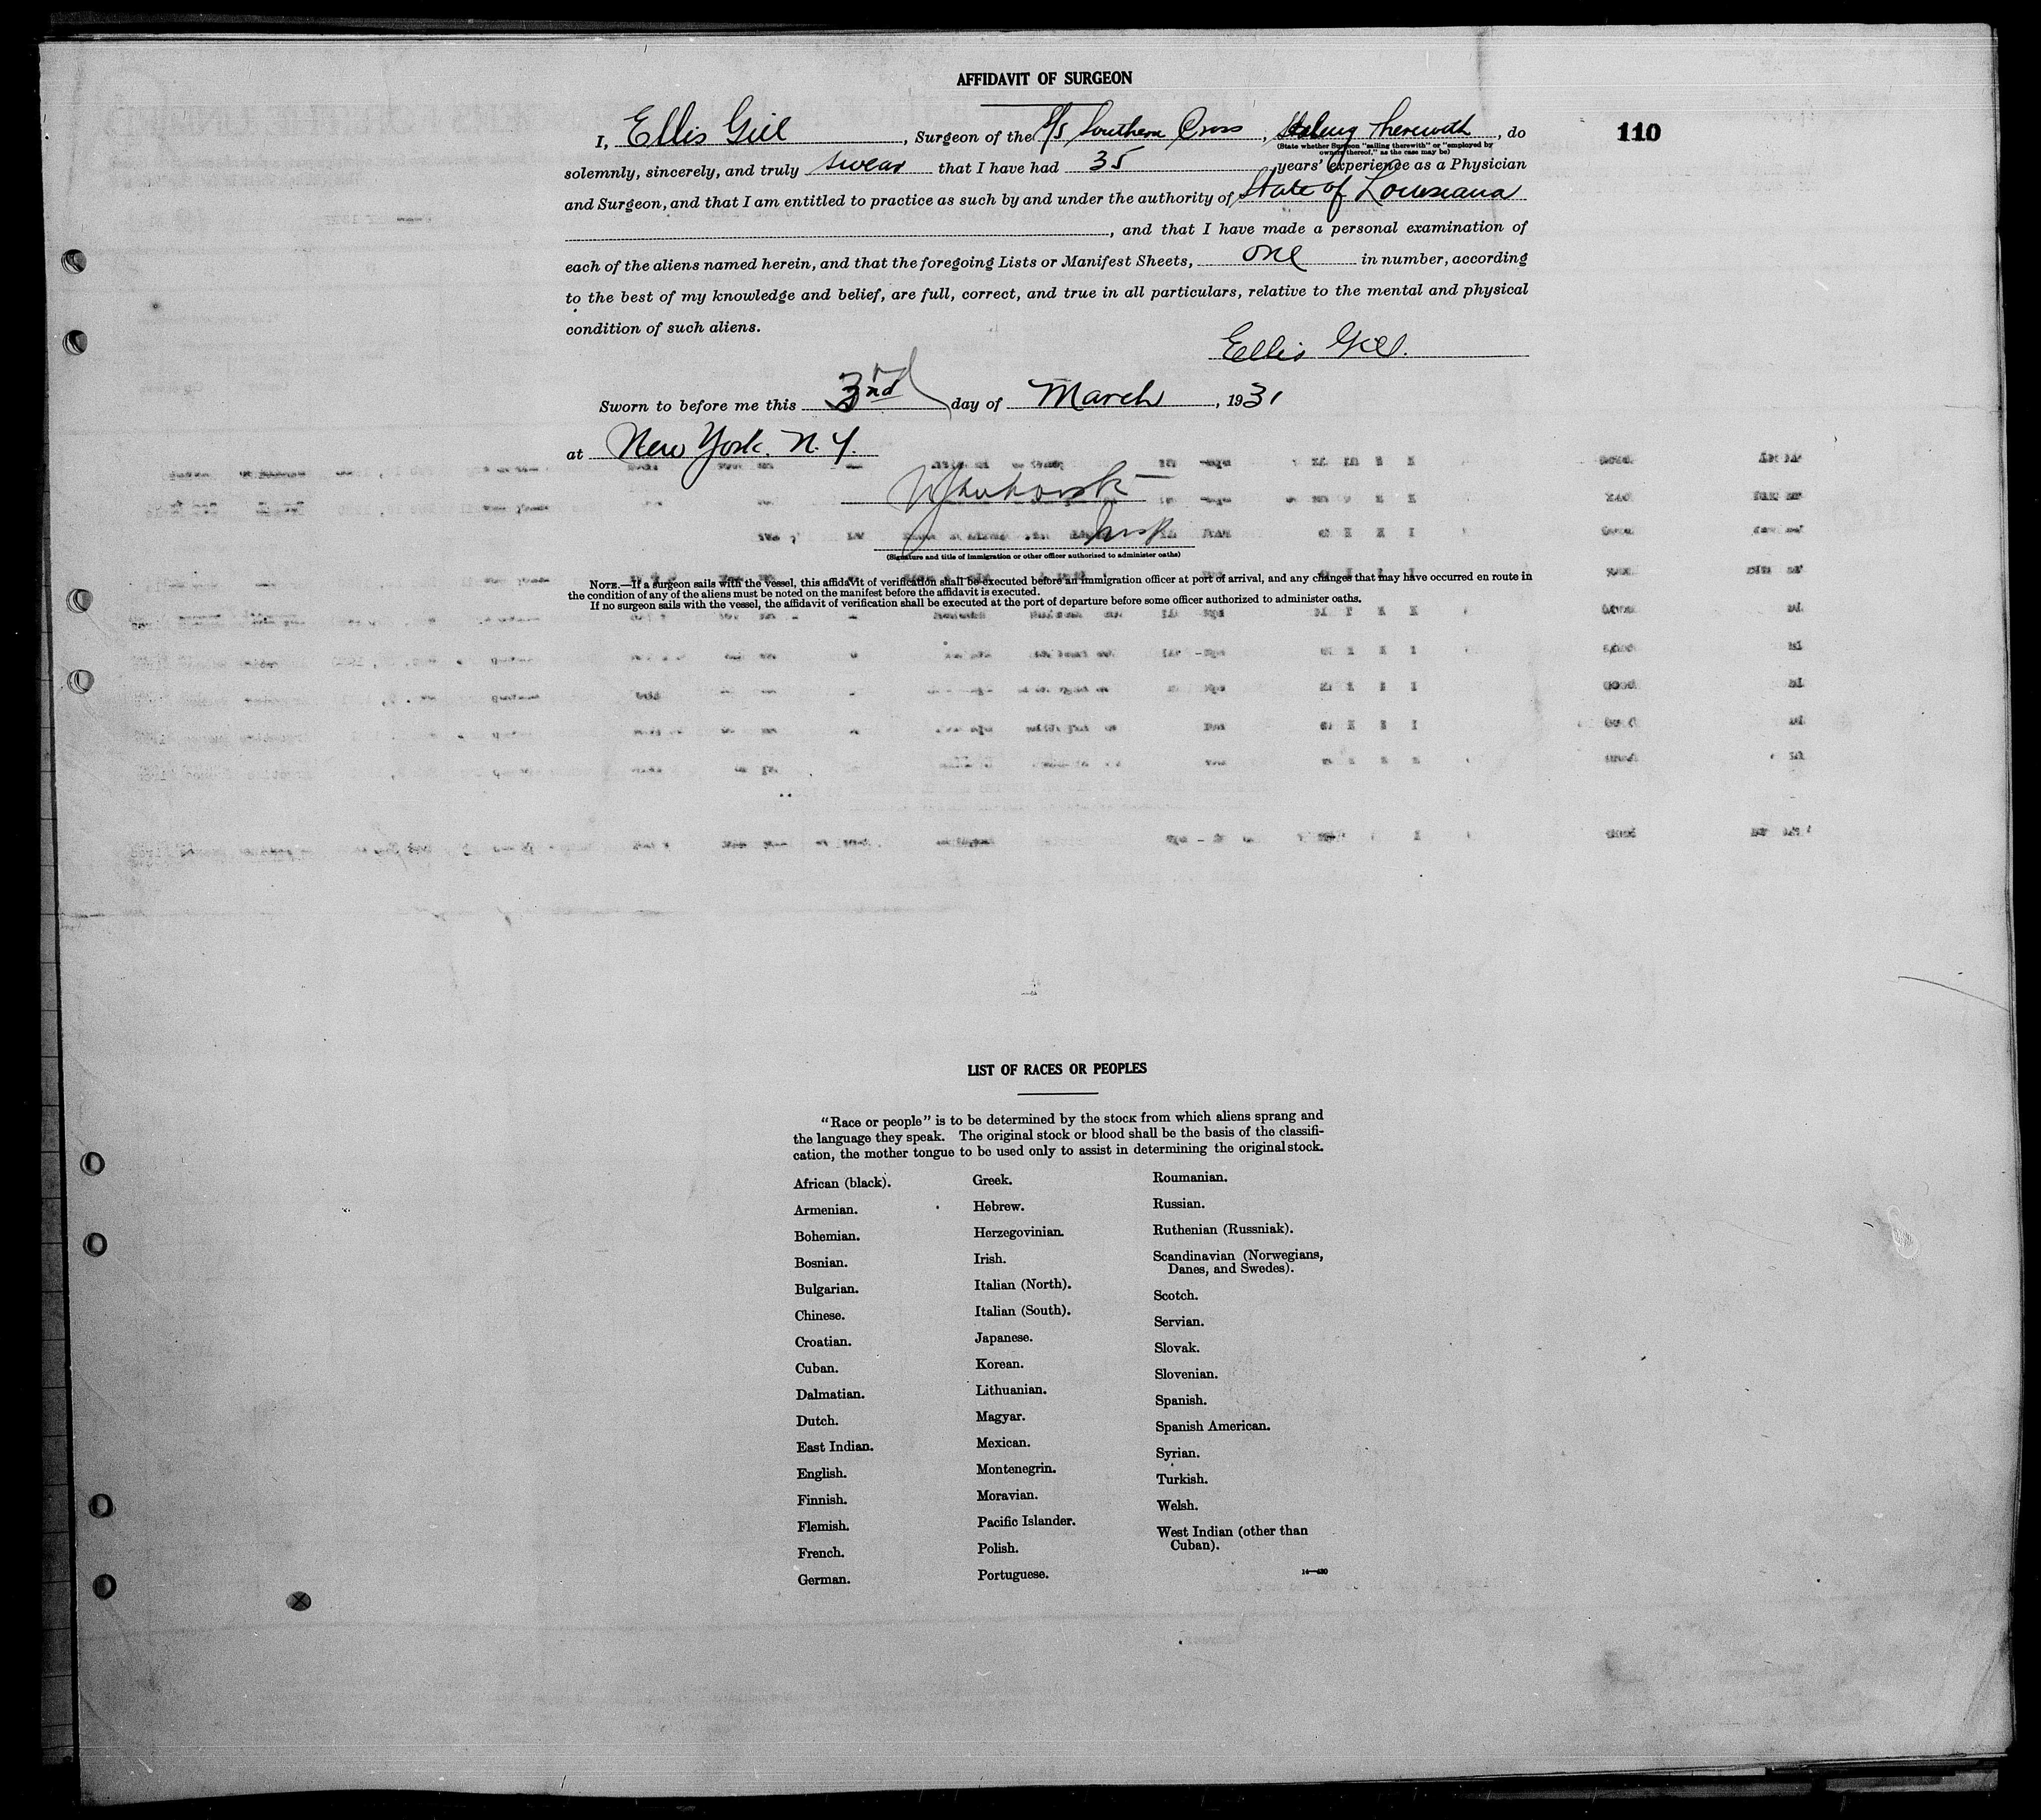 AFFIDAVIT OF SURGEON
110
I, Ellis Gill, Surgeon of the S/S Southern Cross, Sailing therewith, do
(State whether Surgeon "sailing therewith" or "employed by
owners thereof," as the case may be)
solemnly, sincerely, and truly swear that I have had 35 years' experience as a Physician
and Surgeon, and that I am entitled to practice as such by and under the authority of State of Louisiana
, and that I have made a personal examination of
each of the aliens named herein, and that the foregoing Lists or Manifest Sheets, one in number, according
to the best of my knowledge and belief, are full, correct, and true in all particulars, relative to the mental and physical
condition of such aliens.
Ellis Gill.
Sworn to before me this 3rd day of March, 1931
at New York. N. Y.
Insp
(Signature and title of immigration or other officer authorized to administer oaths)
NOTE.—If a surgeon sails with the vessel, this affidavit of verification shall be executed before an immigration officer at port of arrival, and any changes that may have occurred en route in
the condition of any of the aliens must be noted on the manifest before the affidavit is executed.
If no surgeon sails with the vessel, the affidavit of verification shall be executed at the port of departure before some officer authorized to administer oaths.
LIST OF RACES OR PEOPLES
"Race or people" is to be determined by the stock from which aliens sprang and
the language they speak. The original stock or blood shall be the basis of the classifi-
cation, the mother tongue to be used only to assist in determining the original stock.
African (black).
Armenian.
Bohemian.
Bosnian.
Bulgarian.
Chinese.
Croatian.
Cuban.
Dalmatian.
Dutch.
East Indian.
English.
Finnish.
Flemish.
French.
German.
Greek.
Hebrew.
Herzegovinian.
Irish.
Italian (North).
Italian (South).
Japanese.
Korean.
Lithuanian.
Magyar.
Mexican.
Montenegrin.
Moravian.
Pacific Islander.
Polish.
Portuguese.
Roumanian.
Russian.
Ruthenian (Russniak).
Scandinavian (Norwegians,
Danes, and Swedes).
Scotch.
Servian.
Slovak.
Slovenian.
Spanish.
Spanish American.
Syrian.
Turkish.
Welsh.
West Indian (other than
Cuban).
14—430